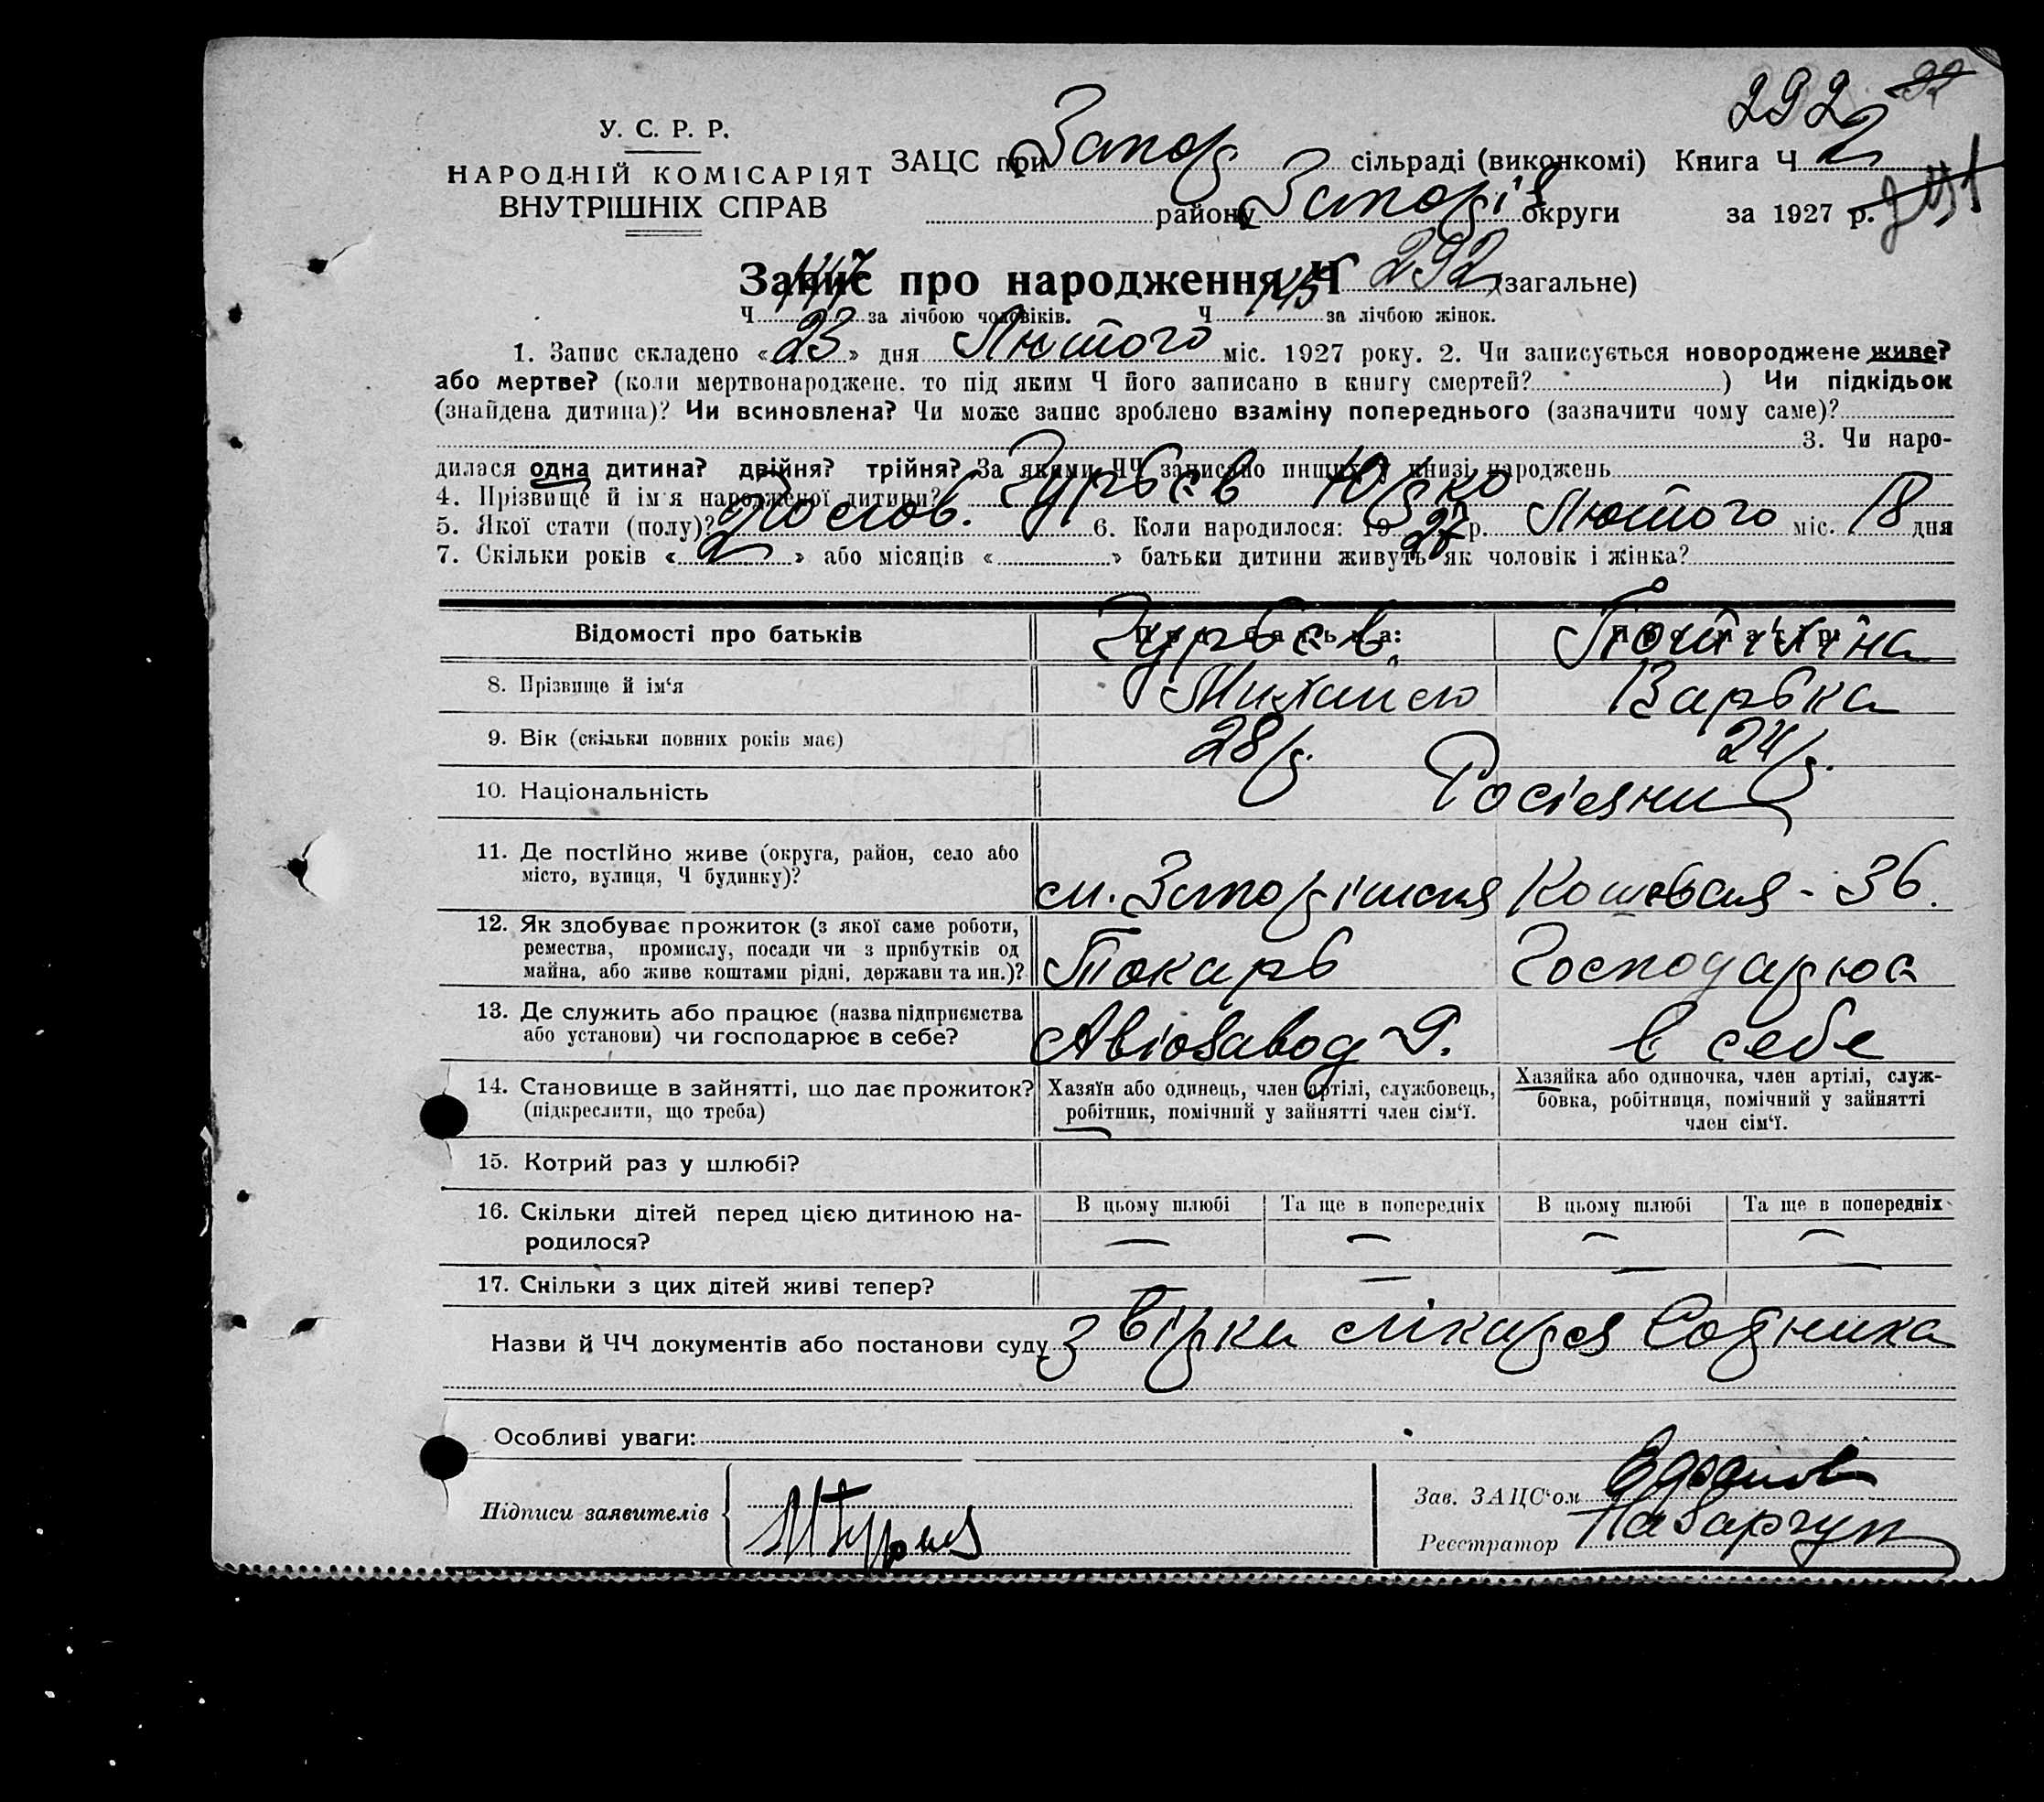 292
У. С. Р. Р.
НАРОДНІЙ КОМІСАРІЯТ
ВНУТРІШНІХ СПРАВ
ЗАЦС при Запор сільраді (виконкомі) Книга Ч 2
району Запоріз округи за 1927 р.
Запис про народження Ч 292 (загальне)
Ч 147 за лічбою чоловіків. Ч 145 за лічбою жінок.
1. Запис складено «23» дня Лютого міс. 1927 року. 2. Чи записується новороджене живе?
або мертве? (коли мертвонароджене, то під яким Ч його записано в книгу смертей? ) Чи підкідьок
(знайдена дитина)? Чи всиновлена? Чи може запис зроблено взаміну попереднього (зазначити чому саме)?
3. Чи наро-
дилася одна дитина? двійня? трійня? За якими ЧЧ записано инших у книзі народжень
4. Прізвище й ім'я народженої дитини? Гурьєв Юрко
5. Якої стати (полу)? Чолов. 6. Коли народилося: 1927 р. Лютого міс. 18 дня
7. Скільки років «2» або місяців « » батьки дитини живуть як чоловік і жінка?
Відомості про батьків
Гурьєв
8. Прізвище й ім'я Михайло Варька
9. Вік (скільки повних років має) 28/р. 24/р.
10. Національність Росіяни
11. Де постійно живе (округа, район, село або
місто, вулиця, Ч будинку)? м. Запоріжжя Кошевая - 36.
12. Як здобуває прожиток (з якої саме роботи,
ремества, промислу, посади чи з прибутків од
майна, або живе коштами рідні, держави та ин.)? Токарь Господарює
13. Де служить або працює (назва підприємства
або установи) чи господарює в себе? Авіозавод 9. в себе
14. Становище в зайнятті, що дає прожиток?
(підкреслити, що треба)
Хазяїн або одинець, член артілі, службовець,
робітник, помічний у зайнятті член сім'ї.
Хазяйка або одиночка, член артілі, служ-
бовка, робітниця, помічний у зайнятті
член сім'ї.
15. Котрий раз у шлюбі?
16. Скільки дітей перед цією дитиною на-
родилося?
В цьому шлюбі Та ще в попередніх В цьому шлюбі Та ще в попередніх
— — — —
17. Скільки з цих дітей живі тепер? — — — —
Назви й ЧЧ документів або постанови суду з вірки лікаря
Особливі уваги:
Підписи заявителів
Зав. ЗАЦС'ом
Реєстратор